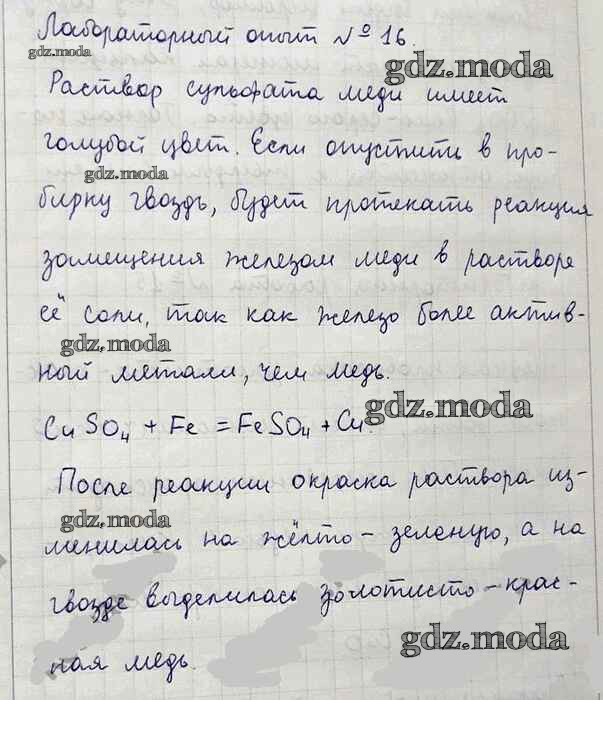 Лабораторный опыт № 16.
gdz.moda
gdz.moda
Раствор сульфата меди имеет
голубой цвет. Если опустить в про-
gdz.moda
бирку гвоздь, будет протекать реакция
замещения железом меди в растворе
gdz.moda
её соли, так как железо более актив-
gdz.moda
ный металл, чем медь.
gdz.moda
CuSO4 + Fe = FeSO4 + Cu.
После реакции окраска раствора из-
gdz.moda
менилась на жёлто-зеленую, а на
гвозде выделилась золотисто-крас-
gdz.moda
ная медь.